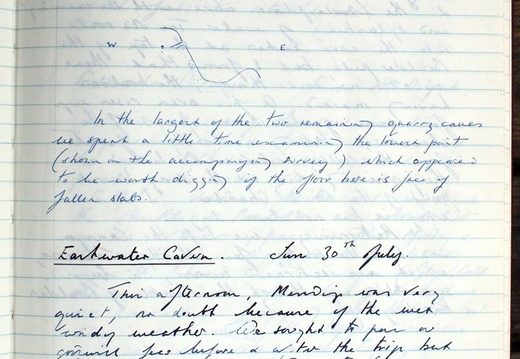 W E
In the largest of the two remaining quarry caves
we spent a little time examining the lowest point
(shown on the accompanying survey) which appeared
to be worth digging if the floor here is free of
fallen slabs.
Eastwater Cavern. Sun 30th July.
This afternoon, Mendip was very
quiet, no doubt because of the wet
windy weather. We sought to pour our
ground for before a the trip but